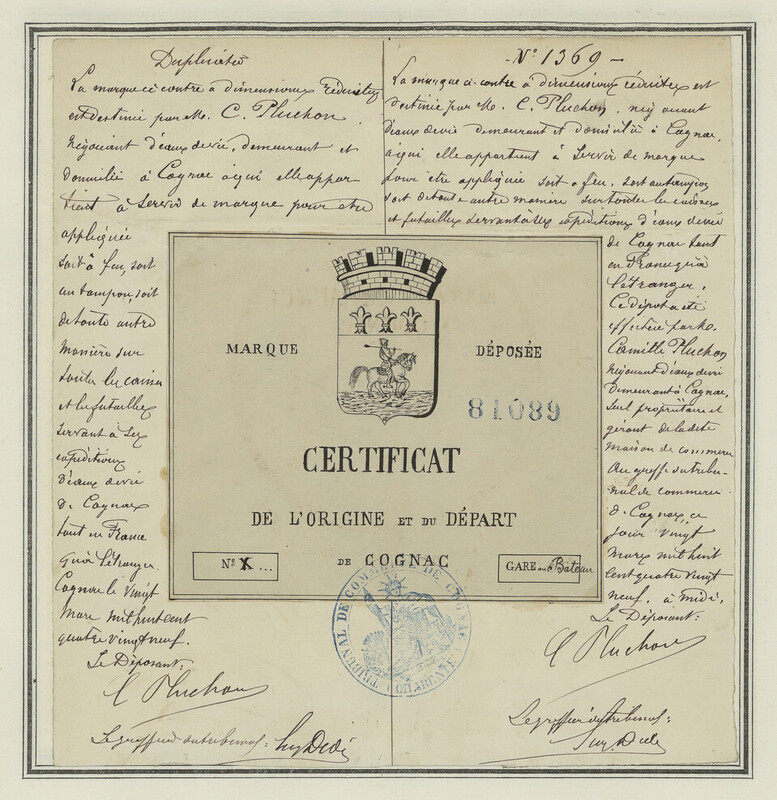 Duplicata
La marque ci contre à dimensions réduites
est destinée par M. C. Pluchon
Négociant d'eaux de vie, demeurant et
domicilié à Cognac à qui elle appar
tient à servir de marque pour être
appliquée
soit à feu, soit
au tampon, soit
de toute autre
manière sur
toutes les caisses
et les futailles
servant à ses
expéditions
d'eaux de vie
de Cognac
tant en France
qu'à l'étranger.
Cognac le vingt
Mars mil huit cent
quatre vingt neuf.
Le Déposant:
C Pluchon
Le greffier du tribunal:
N° 1369
La marque ci-contre à dimensions réduites est
destinée par M. C. Pluchon, négociant
d'eaux de vie demeurant et domicilié à Cognac,
à qui elle appartient à servir de marque
pour être appliquée soit à feu, soit au tampon
soit de toute autre manière sur toutes les caisses
et futailles servant à ses expéditions d'eaux de vie
de Cognac tant
en France qu'à
l'étranger.
Ce dépôt a été
effectué par M.
Camille Pluchon
Négociant d'eaux de vie
demeurant à Cognac,
seul propriétaire et
gérant de la dite
maison de commerce
Au greffe du tribu-
nal de commerce
de Cognac, ce
jour vingt
Mars mil huit
cent quatre vingt
neuf, à midi,
Le Déposant:
C Pluchon
Le greffier du tribunal:
MARQUE DÉPOSÉE
81089
CERTIFICAT
DE L'ORIGINE ET DU DÉPART
DE COGNAC
N° X ...
GARE ou Bateau
TRIBUNAL DE COMMERCE DE COGNAC
(CHARENTE)